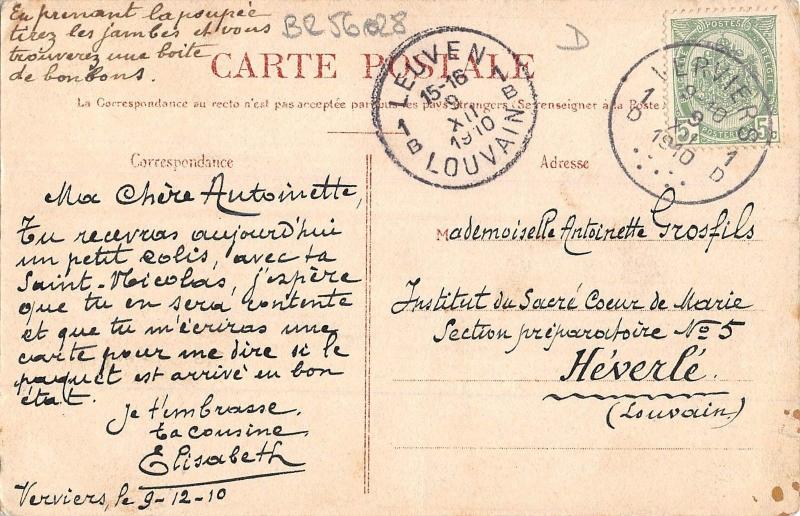 En prenant la poupée
tirez les jambes et vous
trouverez une boite
de bonbons.
BR56028
D
CARTE POSTALE
La Correspondance au recto n'est pas acceptée par tous les pays étrangers (Se renseigner à la Poste
LEUVEN
15-16
9
XII
1910
LOUVAIN
1 B
1 B
POSTES
BELGIQUE
5c 5c
VERVIERS
9-10
9
1910
1 D
1 D
Correspondance
Ma Chère Antoinette,
Tu recevras aujourd'hui
un petit colis, avec ta
Saint-Nicolas, j'espère
que tu en sera contente
et que tu m'écriras une
carte pour me dire si le
paquet est arrivé en bon
état.
Je t'embrasse.
ta cousine
Elisabeth
Verviers, le 9-12-10
Adresse
Mademoiselle Antoinette Grosfils
Institut du Sacré Coeur de Marie
Section préparatoire No 5
Héverlé.
(Louvain)